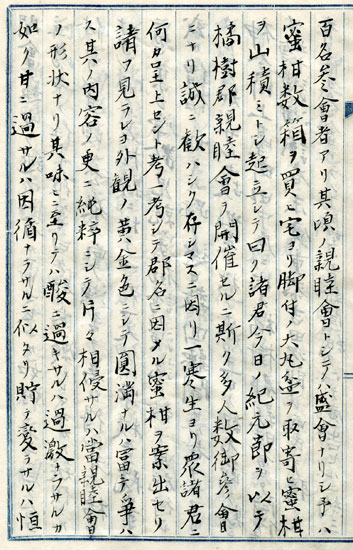 百名参會者アリ其頃ノ親睦會トシテハ盛會ナリシ予ハ
蜜柑数箱ヲ買ヒ宅ヨリ脚付ノ大丸盆ヲ取寄セ蜜柑
ヲ山積ミトシ起立シテ曰ク諸君今日ノ紀元節ヲ以テ
橘樹郡親睦會ヲ開催セルニ斯ク多人数御参會
ニナリ誠ニ歓ハシク存シマスニ因リ一寒生ヨリ衆諸君ニ
何カ呈上セント考一考シテ郡名ニ因メル蜜柑ヲ案出セリ
請フ見ラレヨ外観ノ黄ハ金色ニシテ圓満ナルハ富テ争ハ
ス其ノ内容ノ更ニ純粋ニシテ片々相侵サルハ當親睦會
ノ形状ナリ其味ニ至リテハ酸ニ過キサルハ過激ナラサルカ
如ク甘ニ過サルハ因循ナラサルニ似タリ貯テ変セサルハ恒